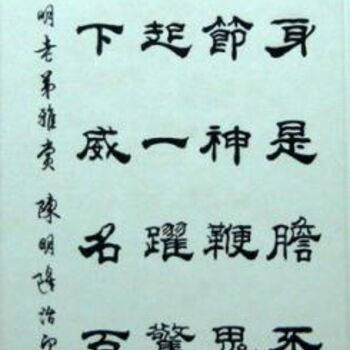 身是膽
節神鞭鬼
起一躍驚
下威名百
明老弟雅賞 陳明隆治印